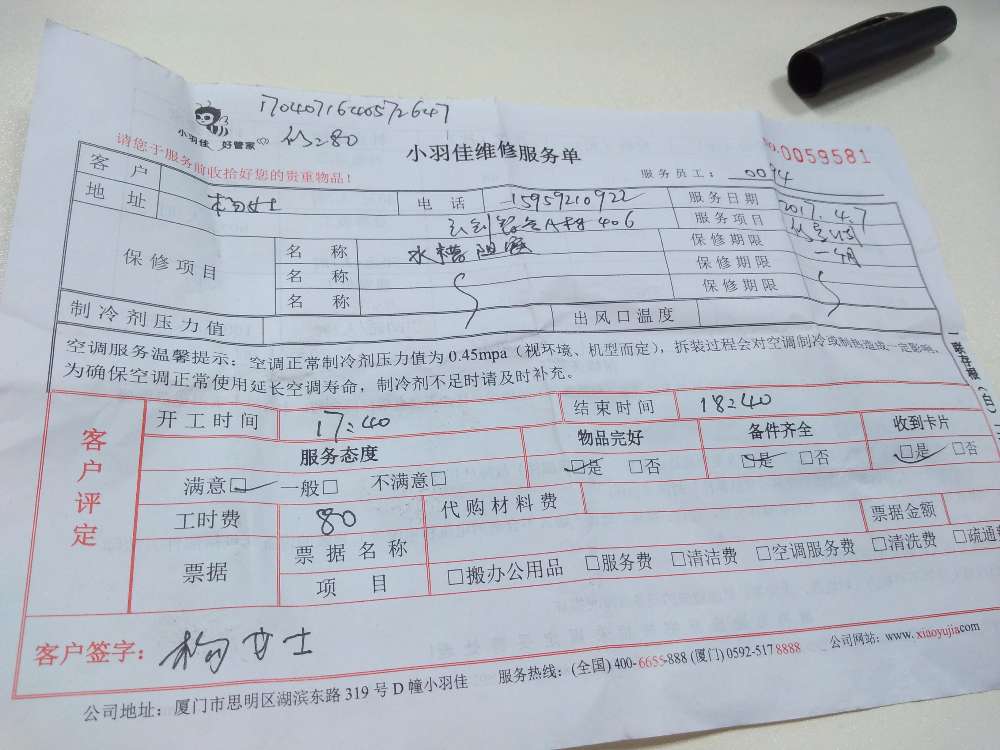 1704071640572647
小羽佳 好管家
80
小羽佳维修服务单
0059581
请您于服务前收拾好您的贵重物品!
服务员工:
客户 女士 电话 15959210922 服务日期 2017.4.7
地址 A 406 服务项目
保修项目 名称 水槽阻塞 保修期限 一个月
名称 保修期限
名称 保修期限
制冷剂压力值 出风口温度
空调服务温馨提示:空调正常制冷剂压力值为 0.45mpa(视环境、机型而定),拆装过程会对空调制冷或制热造成一定影响,
为确保空调正常使用延长空调寿命,制冷剂不足时请及时补充。
一联存根(白)
客户评定
开工时间 17:40 结束时间 18:40
服务态度 物品完好 备件齐全 收到卡片
满意□ 一般□ 不满意□ □是 □否 □是 □否 □是 □否
工时费 80 代购材料费
票据 票据名称 票据金额
项目 □搬办公用品 □服务费 □清洁费 □空调服务费 □清洗费 □疏通费
客户签字: 女士
公司地址:厦门市思明区湖滨东路 319 号 D 幢小羽佳 服务热线:(全国) 400-6655-888 (厦门) 0592-517 8888 公司网站:www.xiaoyujia.com